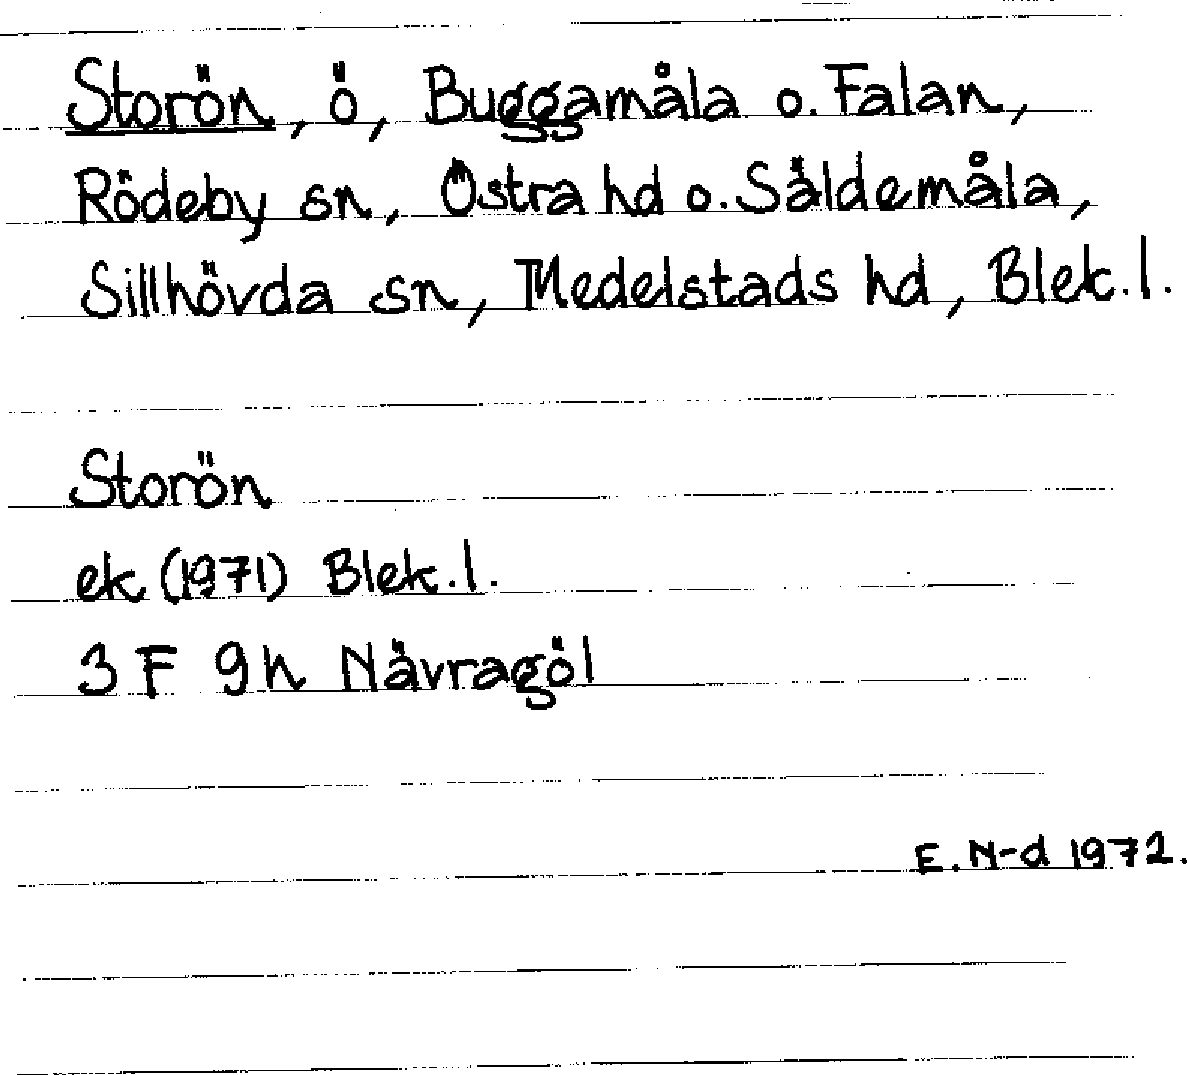 Storön, ö, Buggamåla o. Falan,
Rödeby sn, Östra hd o. Säldemåla,
Sillhövda sn, Medelstads hd, Blek. l.
Storön
ek (1971) Blek. l.
3 F 9 h Nävragöl
E. N-d 1972.